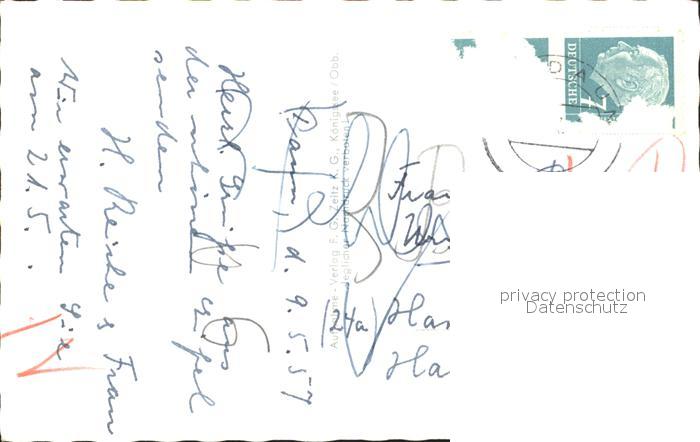 Daun, d. 9.5.57
Herzl. Grüße aus
der schönen Eifel
senden
H. Reiche & Frau
Wir erwarten Sie
am 21.5.
Aufnahme - Verlag F. G. Zeitz K. G., Königssee / Obb.
Jeglicher Nachdruck verboten!
Frau
24a) Ham
Ha
DEUTSCHE
7
DAUN
privacy protection
Datenschutz